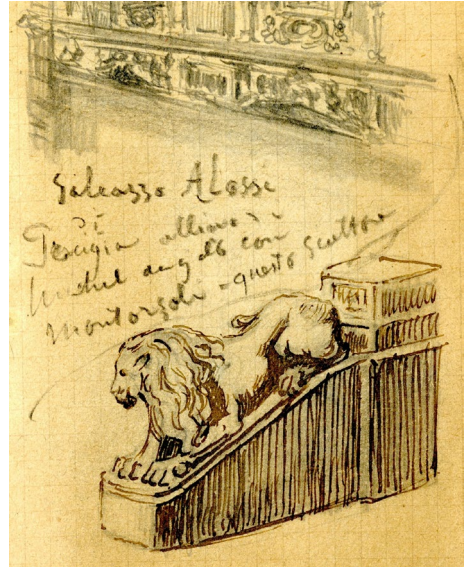 Galeazzo Alessi
di
Perugia allievo di
Michel angelo con
Montorsoli - questo scultore